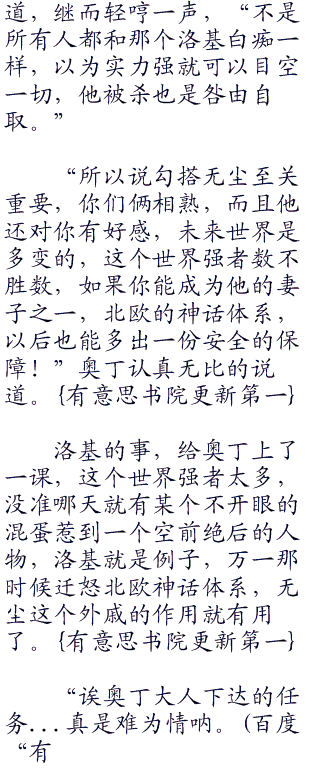 道，继而轻哼一声，“不是
所有人都和那个洛基白痴一
样，以为实力强就可以目空
一切，他被杀也是咎由自
取。”
“所以说勾搭无尘至关
重要，你们俩相熟，而且他
还对你有好感，未来世界是
多变的，这个世界强者数不
胜数，如果你能成为他的妻
子之一，北欧的神话体系，
以后也能多出一份安全的保
障！”奥丁认真无比的说
道。{有意思书院更新第一}
洛基的事，给奥丁上了
一课，这个世界强者太多，
没准哪天就有某个不开眼的
混蛋惹到一个空前绝后的人
物，洛基就是例子，万一那
时候迁怒北欧神话体系，无
尘这个外戚的作用就有用
了。{有意思书院更新第一}
“诶奥丁大人下达的任
务...真是难为情呐。(百度
“有